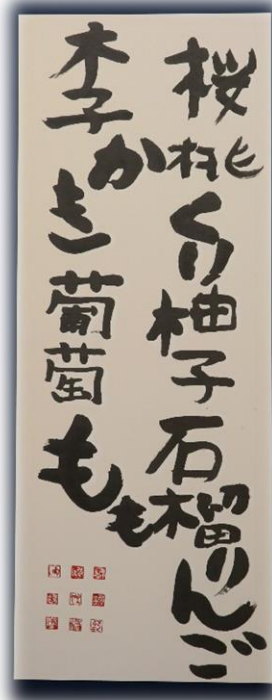 桜桃くり柚子石榴りんご
李かき葡萄もも